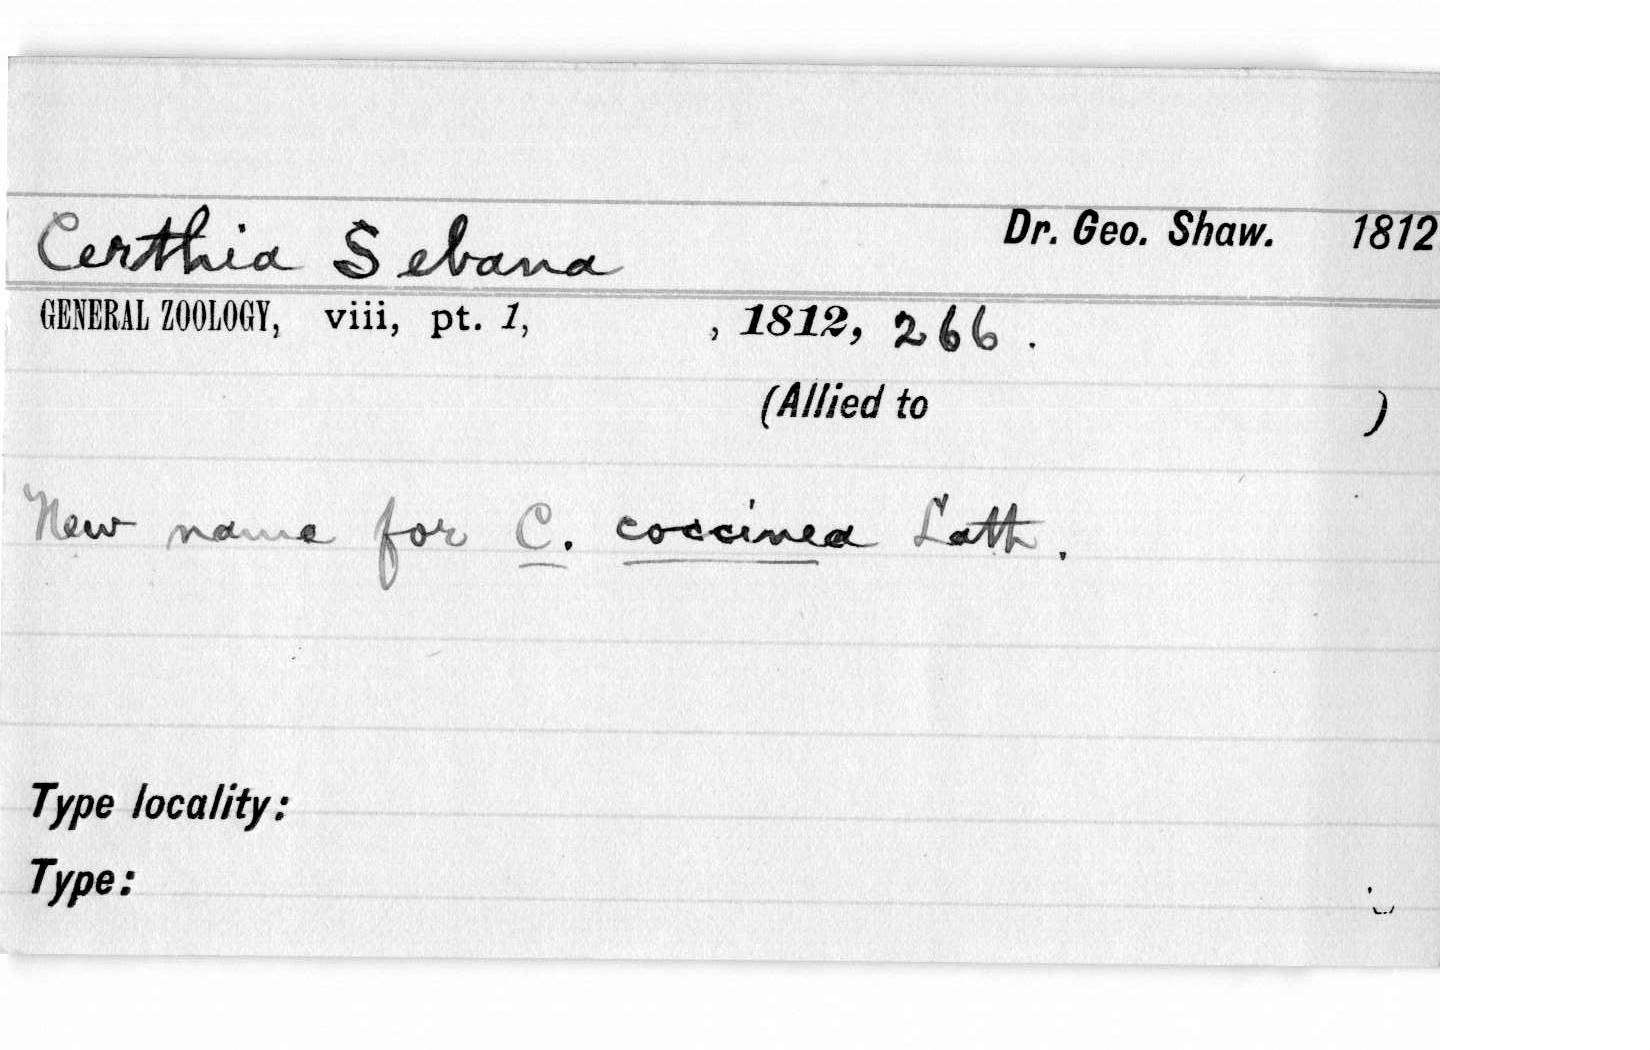 Certhia Sebana Dr. Geo. Shaw. 1812
GENERAL ZOOLOGY, viii, pt. 1, , 1812, 266.
(Allied to )
New name for C. coccinea Lath.
Type locality:
Type: